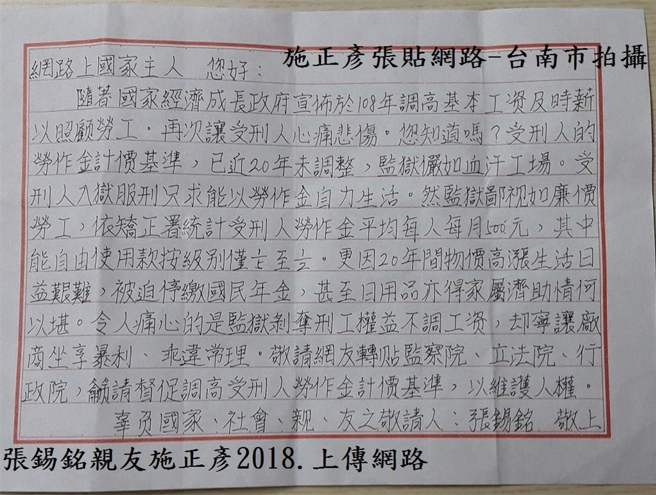 施正彥張貼網路-台南市拍攝
網路上國家主人 您好:
隨著國家經濟成長政府宣佈於108年調高基本工資及時薪
以照顧勞工。再次讓受刑人心痛悲傷。您知道嗎?受刑人的
勞作金計價基準,已近20年未調整,監獄儼如血汗工場。受
刑人入獄服刑只求能以勞作金自力生活。然監獄鄙視如廉價
勞工,依矯正署統計受刑人勞作金平均每人每月500元,其中
能自由使用款按級別僅 至 。更因20年間物價高漲生活日
益艱難,被迫停繳國民年金,甚至日用品亦得家屬濟助情何
以堪。令人痛心的是監獄剝奪刑工權益不調工資,却寧讓廠
商坐享暴利、乖違常理。敬請網友轉貼監察院、立法院、行
政院,籲請督促調高受刑人勞作金計價基準,以維護人權。
辜負國家、社會、親、友之敬請人:張錫銘 敬上
張錫銘親友施正彥2018.上傳網路